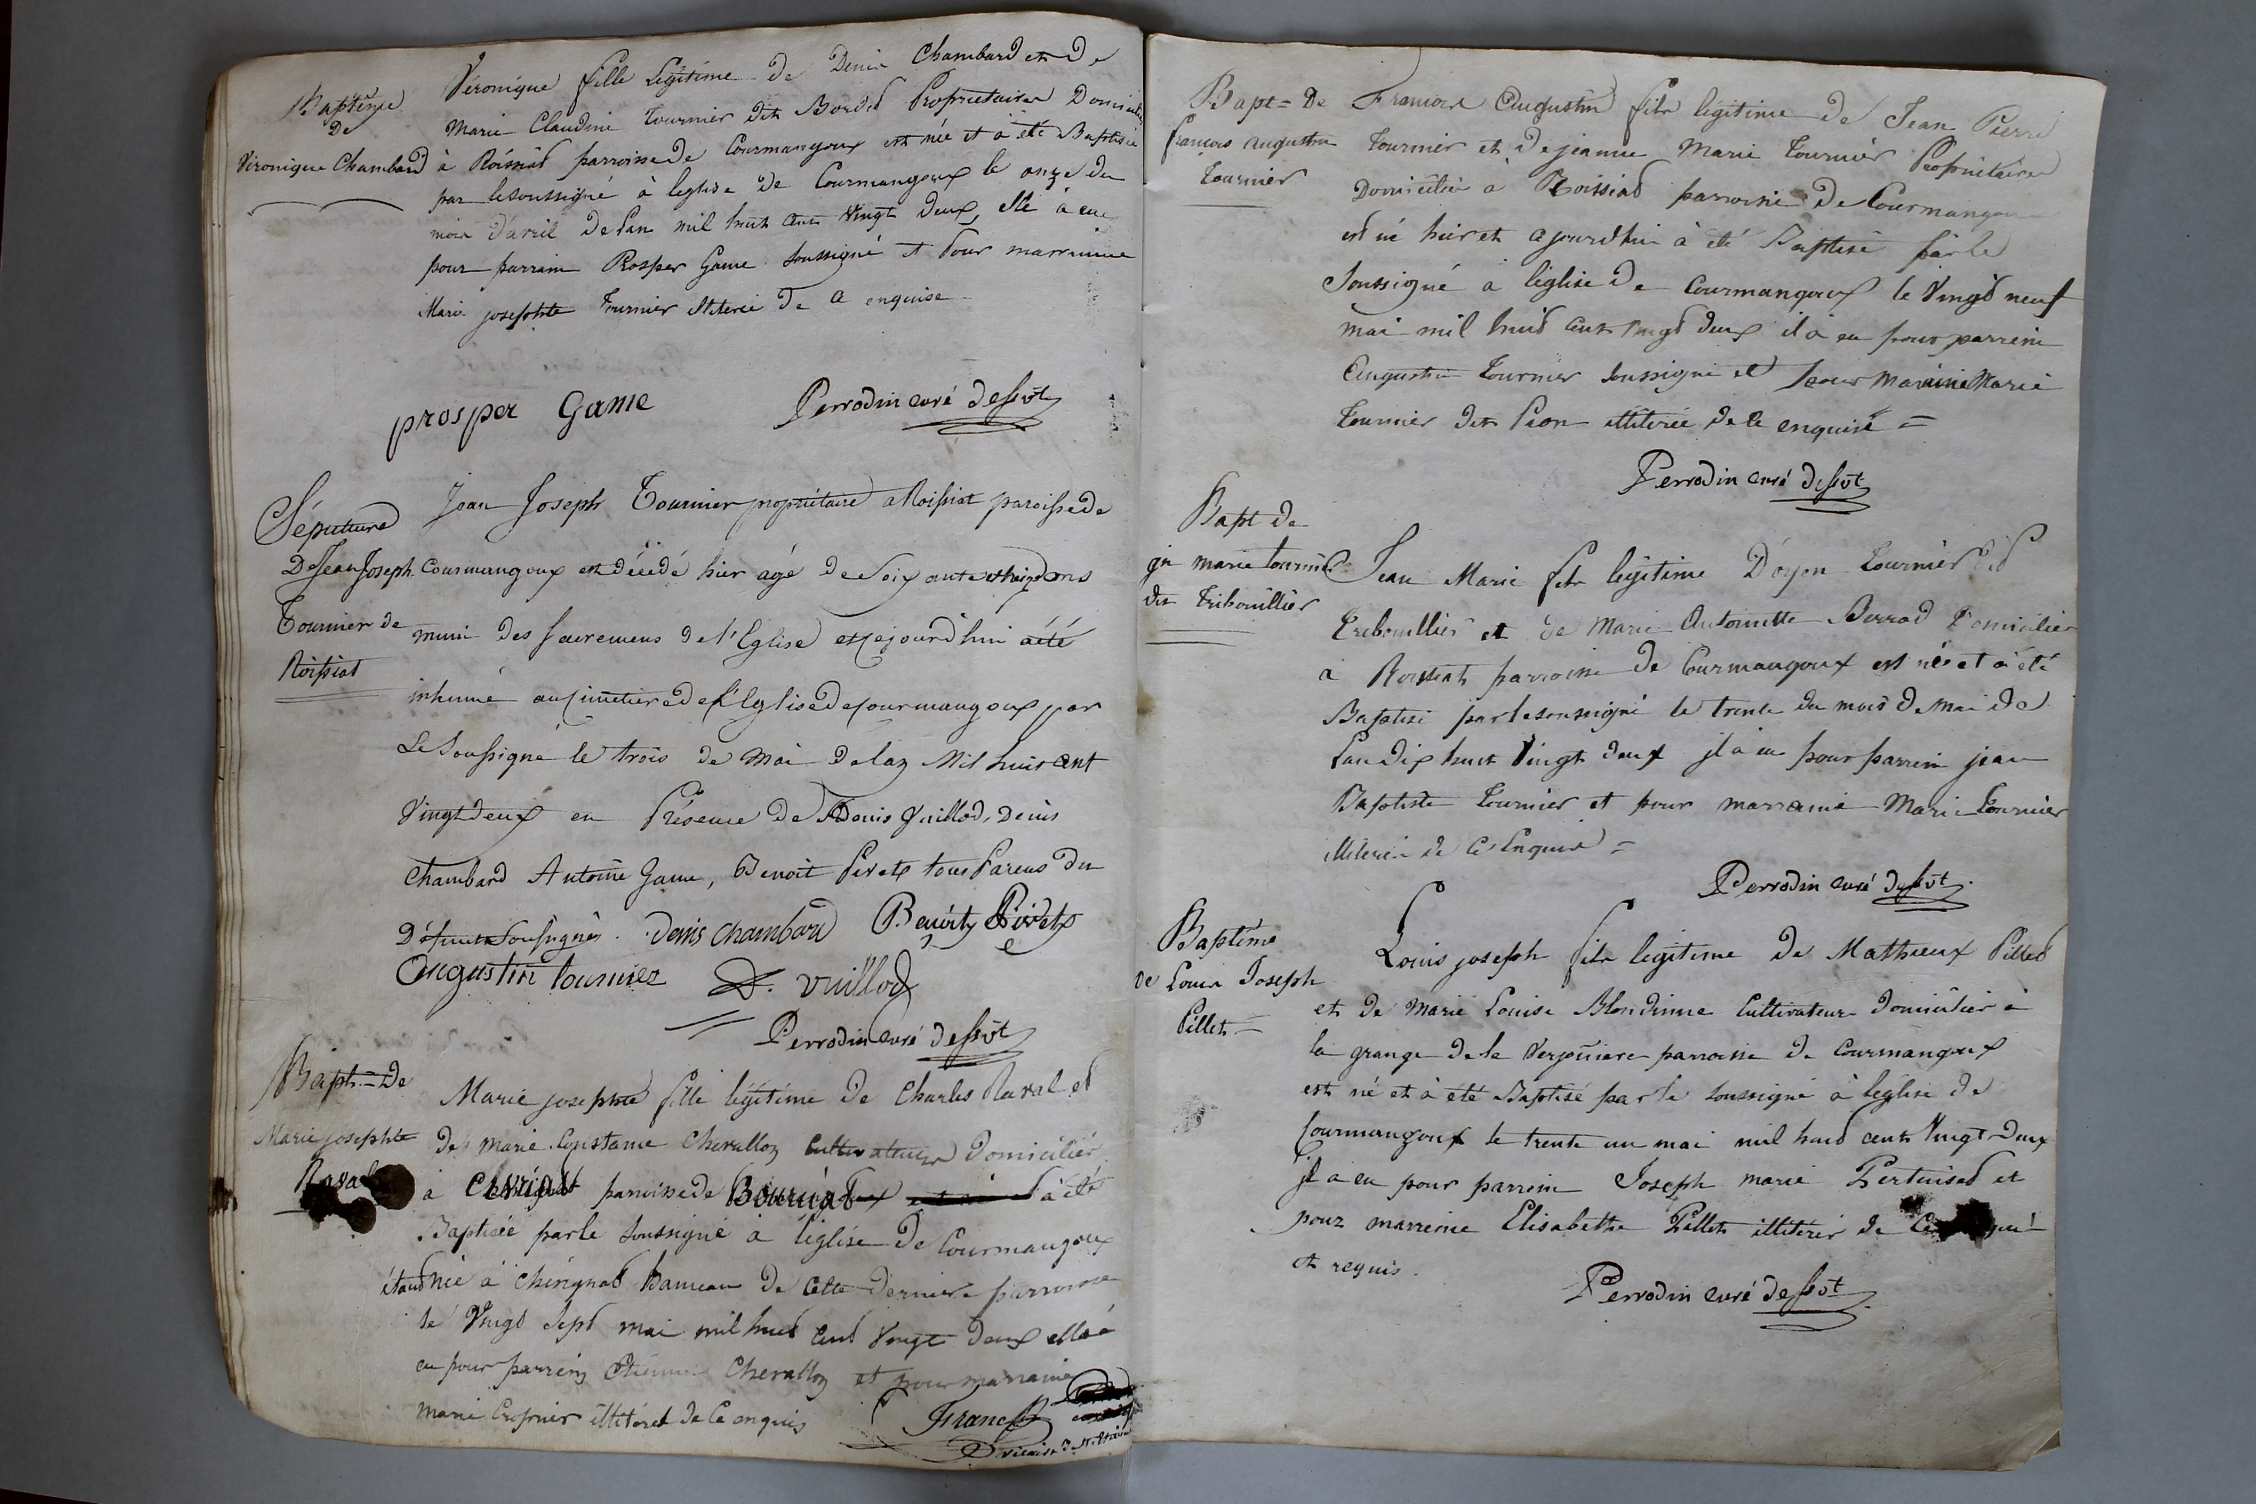 Baptême
De
Véronique Chambard
Véronique fille Légitime de Denis Chambard et De
Marie Claudine Tournier dit Bordet Propriétaires Domiciliés
à Roissiat parroisse de Courmangoux est née et à été Baptisée
par le soussigné à l'eglise De Courmangoux le onze du
mois d'avril De l'an mil huit cent Vingt Deux, elle à eu
pour parrain Prosper Game soussigné et Pour marraine
Marie josephte Tournier illiterée De a enquise
prosper Game Perrodin curé desservt
Sépulture
De Jean Joseph
Tournier de
Roissiat
Jean Joseph Tournier propriétaire a Roissiat paroisse de
Courmangoux est décédé hier agé de Soixante et treize ans
muni des sacremens de l'Eglise et cejourd'hui a été
inhumé au cimetiere de l'Eglise de courmangoux par
Le Soussigné le trois de Mai de l'an Mil huit cent
Vingt deux en Présence de Denis Vuillod, Denis
Chambard Antoine Game, Benoit Pivet tous Parens du
Défunt Soussignés. Denis Chambard Benoit Pivet
Augustin tournier D. Vuillod
Perrodin curé desservt
Bapt = De
Marie josephte
Raval
Marie josephte fille légitime de Charles Raval et
De marie Constance Chevallon cultivateurs Domiciliés
à parroisse de à été
Baptisée par le soussigné à l'église De Courmangoux
étant née à Chérignat hameau De cette Derniere parroisse
le Vingt Sept mai mil huit cent Vingt Deux elle à
eu pour parrein Chevallon et pour marraine
marie illitérés de ce enquis
Franc
vicaire de
Bapt = De
francois augustin
tournier
Francois Augustin fils légitime de Jean Pierre
Tournier et de jeanne Marie Tournier Propriétaires
Domiciliés à Roissiat parroisse De Courmangoux
est né hier et ajourdhui à été Baptisé par le
Soussigné à l'église De Courmangoux le Vingt neuf
mai mil huit cent vingt deux il à eu pour parrein
Augustin Tournier soussigné et pour marraine Marie
Tournier dit Pion illiterée de ce enquise =
Perrodin curé desservt
Bapt de
jn marie tournier
dit Tribouillier
Jean Marie fils légitime D'oyen Tournier dit
Trebouillier et de Marie Antoinette Berrod Domiciliés
à Roissiat parroisse de Courmangoux est né et à été
Baptisé par le soussigné le trente du mois de mai de
l'an dix huit Vingt deux il a eu pour parrein jean
Baptiste Tournier et pour marraine Marie Tournier
illiterés de ce Enquis =
Perrodin curé desservt
Baptême
de Louis Joseph
Pillet =
Louis joseph fils légitime de Mathieux Pillet
et de Marie Louise Blondinne Cultivateurs Domiciliés à
la grange de la parroisse de Courmangoux
est né et à été Baptisé par le soussigné à l'église de
Courmangoux le trente un mai mil huit cent Vingt Deux
il a eu pour parrein Joseph marie Pertuiset et
pour marreine Elisabethe Pillet illitérés de
et requis.
Perrodin curé desservt